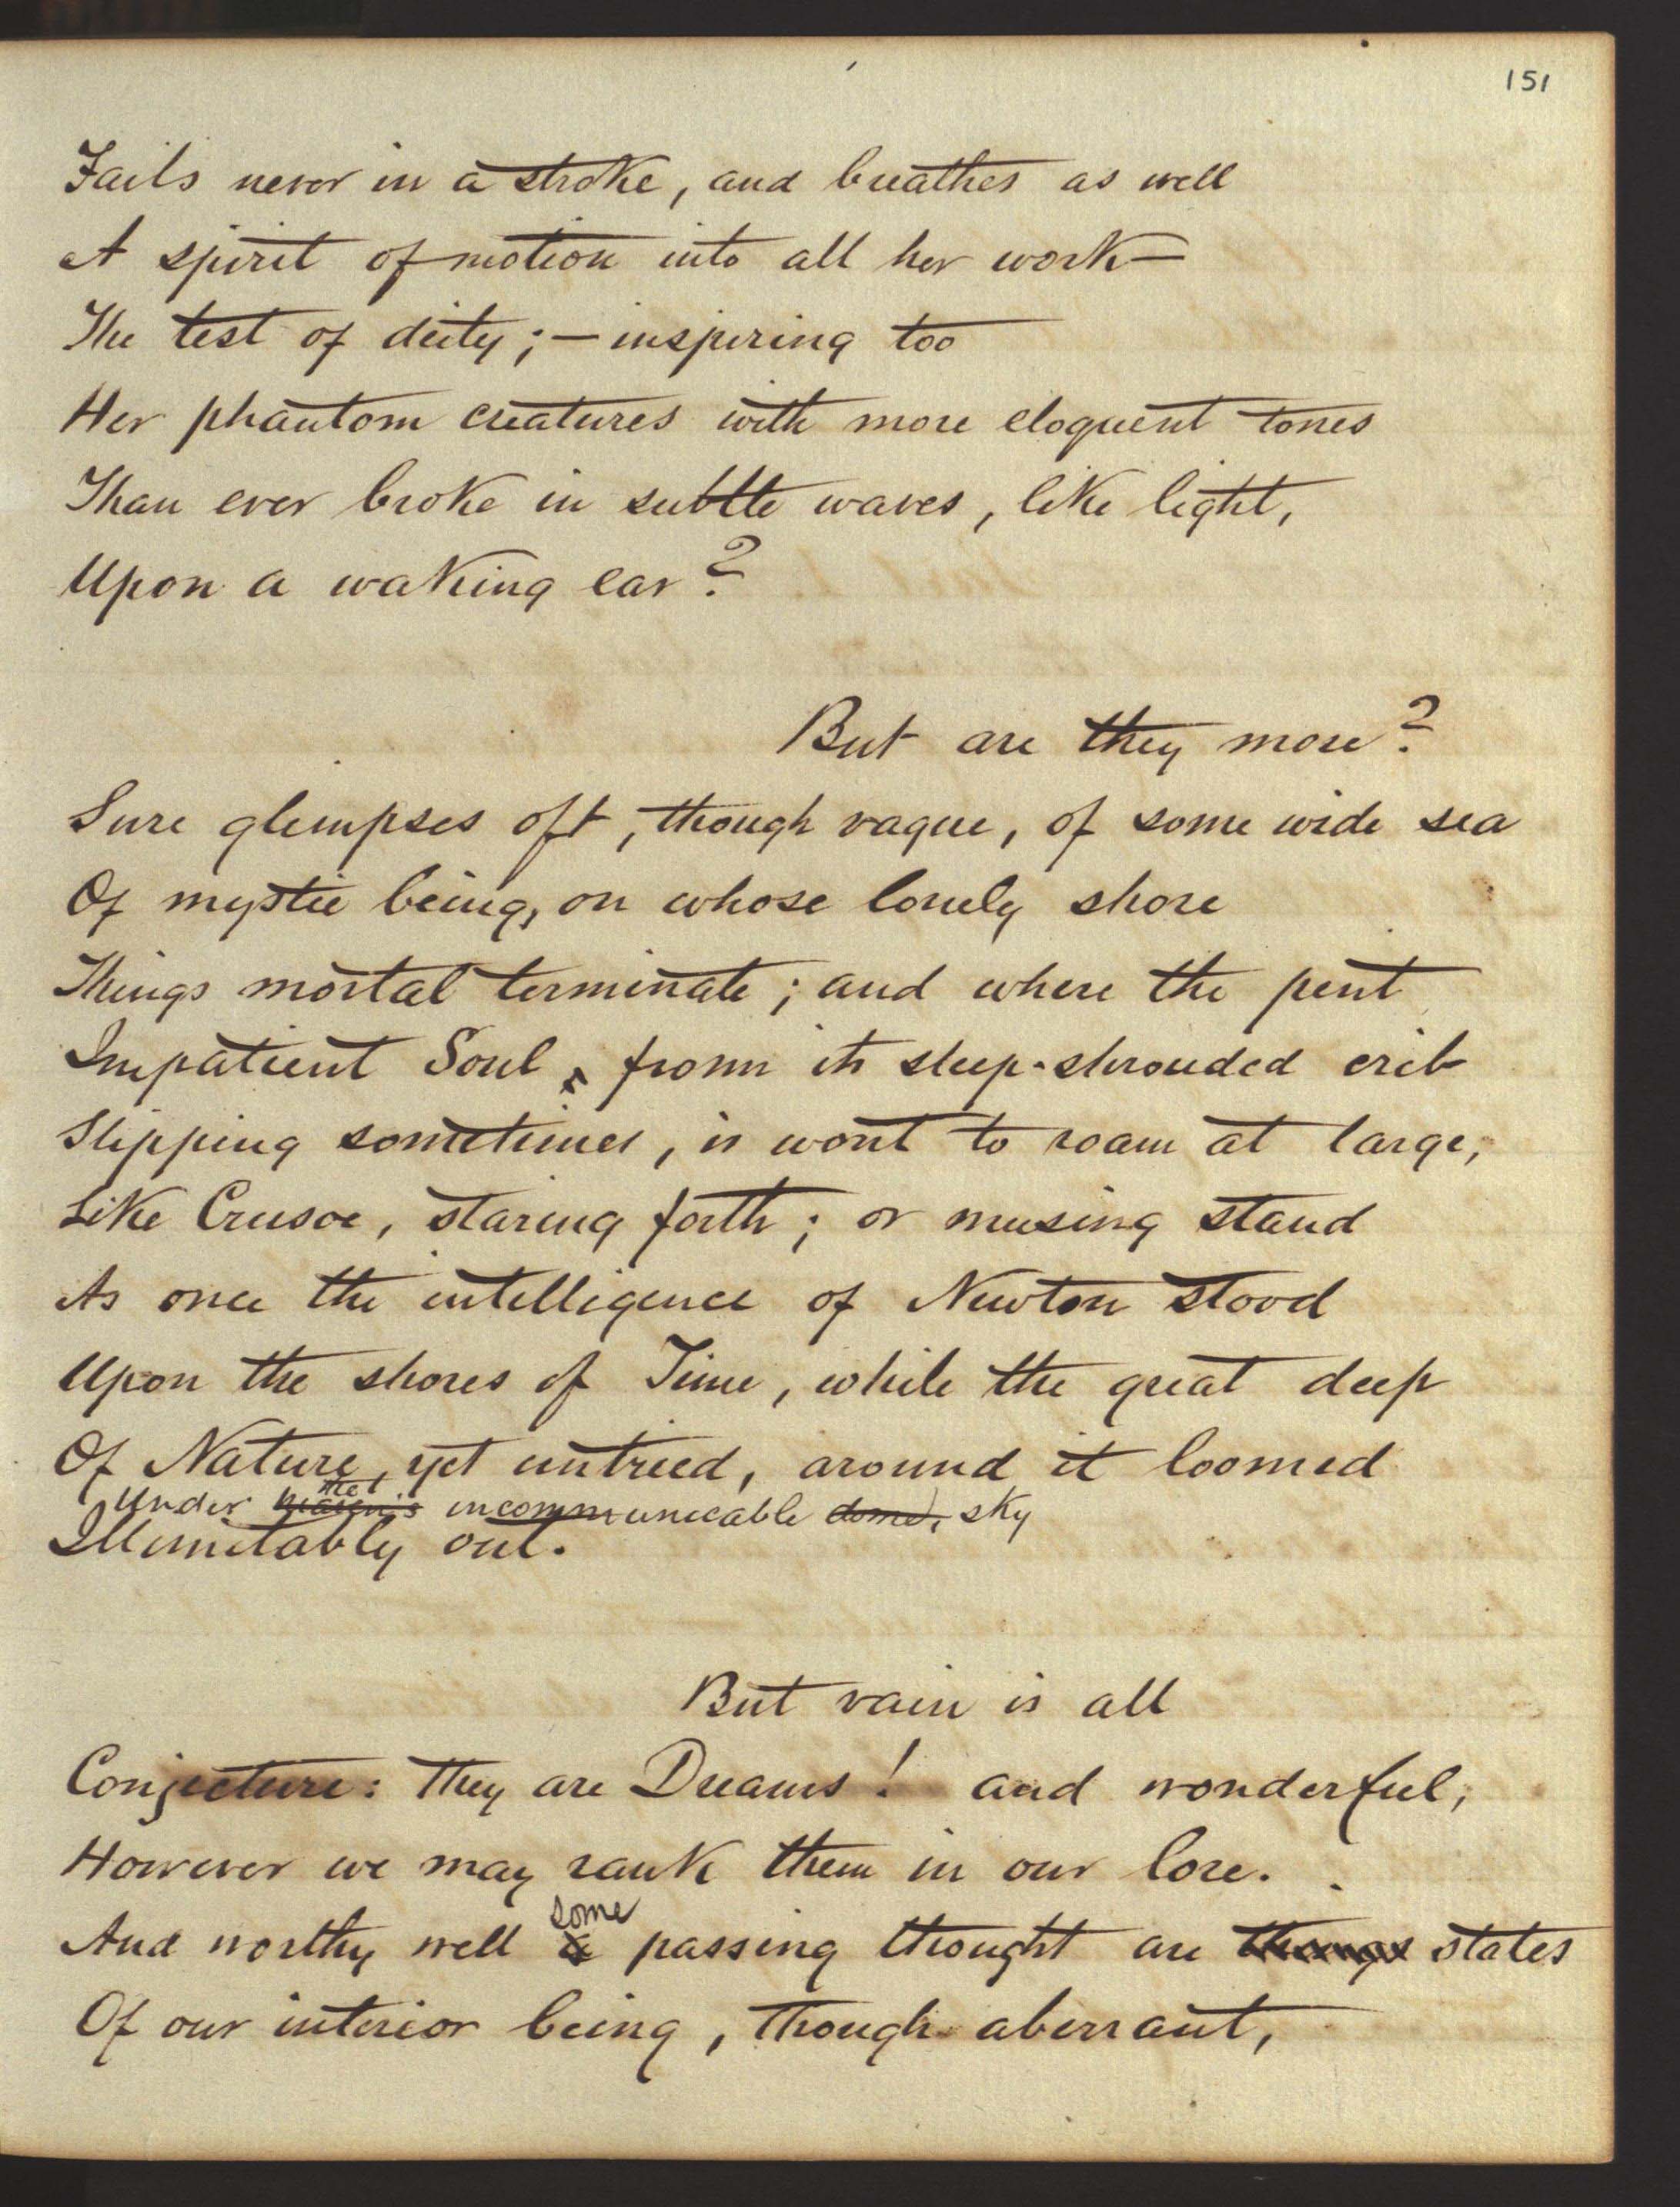 151
Fails never in a stroke, and breathes as well
A spirit of motion into all her work—
The test of deity;—inspiring too
Her phantom creatures with more eloquent tones
Than ever broke in subtle waves, like light,
Upon a waking ear?
But are they more?
Sure glimpses oft, though vague, of some wide sea
Of mystic being, on whose lonely shore
Things mortal terminate; and where the pent
Impatient Soul, from its sleep-shrouded crib
Slipping sometimes, is wont to roam at large,
Like Crusoe, staring forth; or musing stand
As once the intelligence of Newton stood
Upon the shores of Time, while the great deep
Of Nature, yet untried, around it loomed
the
Under heaven's incommunicable dome, sky
Illimitably out.
But vain is all
Conjecture: They are Dreams! and wonderful,
However we may rank them in our lore.
some
And worthy well a passing thought are things states
Of our interior being, though aberrant,